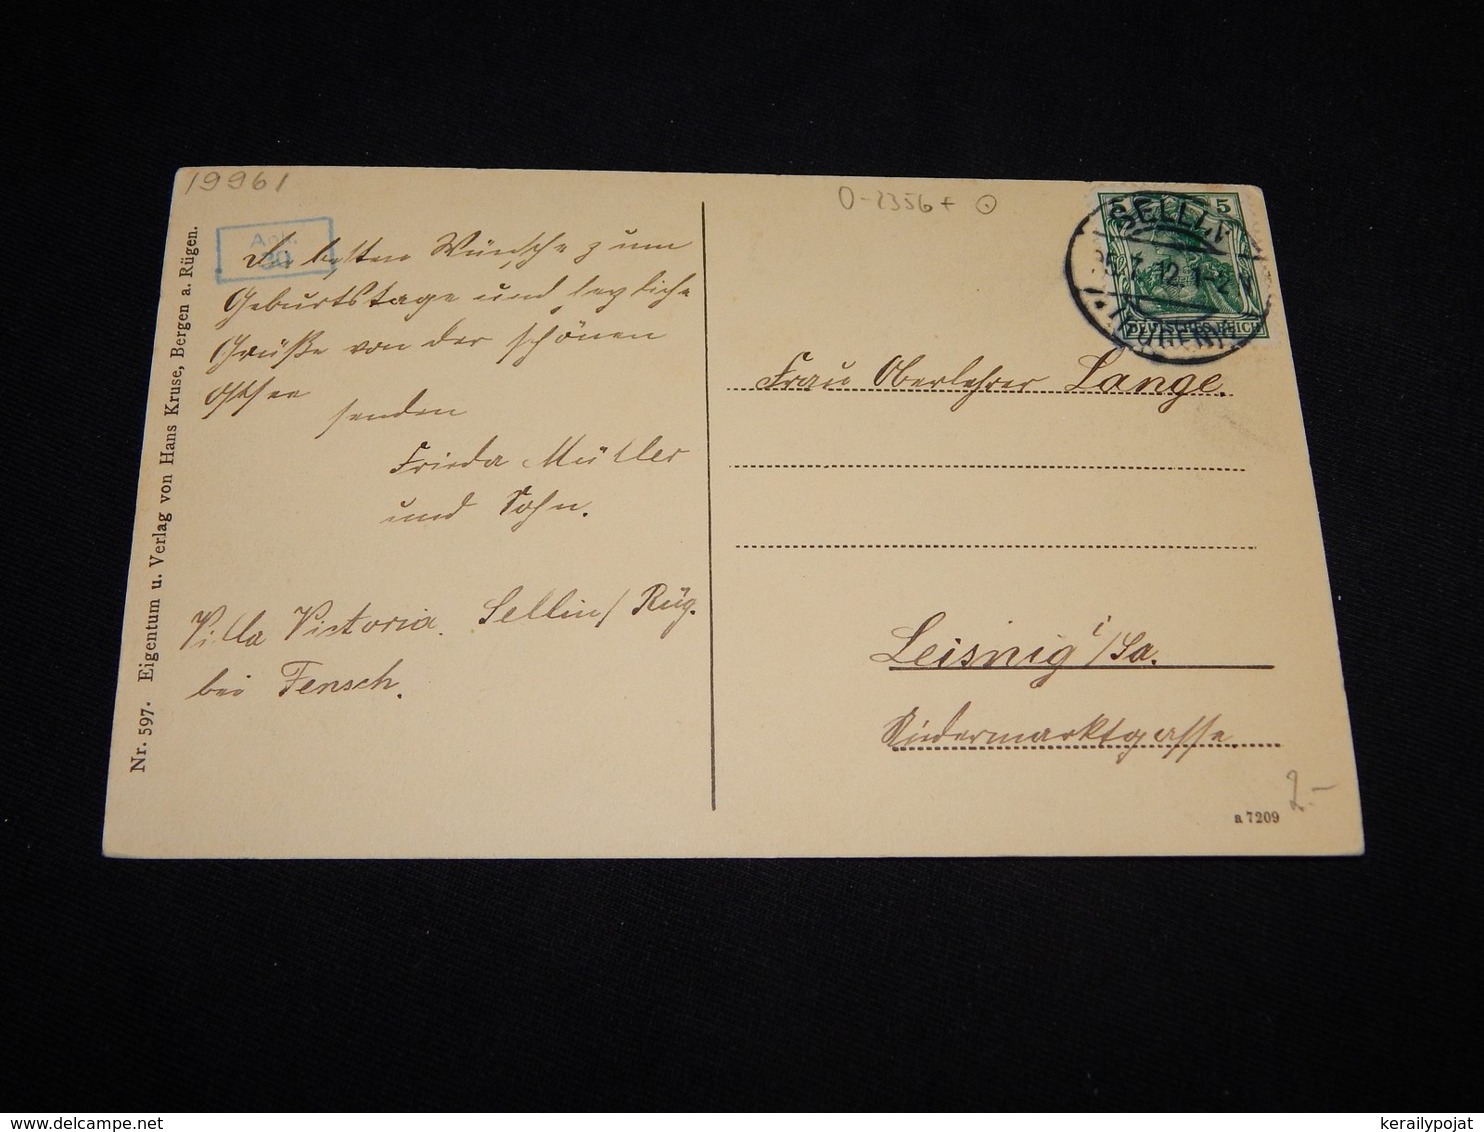 19961
0-2356+
Ank.
30
Die besten Wünsche zum
Geburtstage und herzliche
Grüße von der schönen
Ostsee
senden
Frieda Müller
und Sohn.
Villa Victoria. Sellin/Rüg.
bei Fensch.
Nr. 597. Eigentum u. Verlag von Hans Kruse, Bergen a. Rügen.
5 5
DEUTSCHES REICH
SELLIN
25.7.12.1-2 V
(RÜGEN)
Frau Oberlehrer Lange.
Leisnig i/Sa.
Niedermarktgasse.
2.-
a 7209
kerailypojat